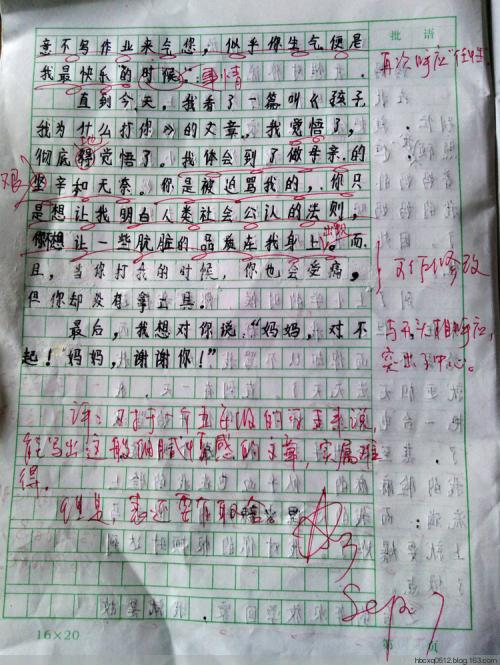 批 语
意不写作业来气您，似乎你生气便是
我最快乐的时候。事情
再次呼应"任性"
直到今天，我看了一篇叫《孩子，
我为什么打你》的文章，我觉悟了，
彻底得觉悟了。我体会到了做母亲的
地
艰
坚辛和无奈。你是被迫骂我的，你只
是想让我明白人类社会公认的法则，
你想让一些肮脏的品质在我身上。而
出现
且，当你打我的时候，你也会受痛，
但你却没有拿工具。
可作修改
最后，我想对你说"妈妈，对不
起！妈妈，谢谢你！"
与开头相呼应，
突出了中心。
评：对于一个五年级的孩子来说，
能写出这般细腻情感的文章，实属难
得。
但是，表述要有取舍。
Sep 7
16×20
第 页
hbcxq0612.blog.163.com